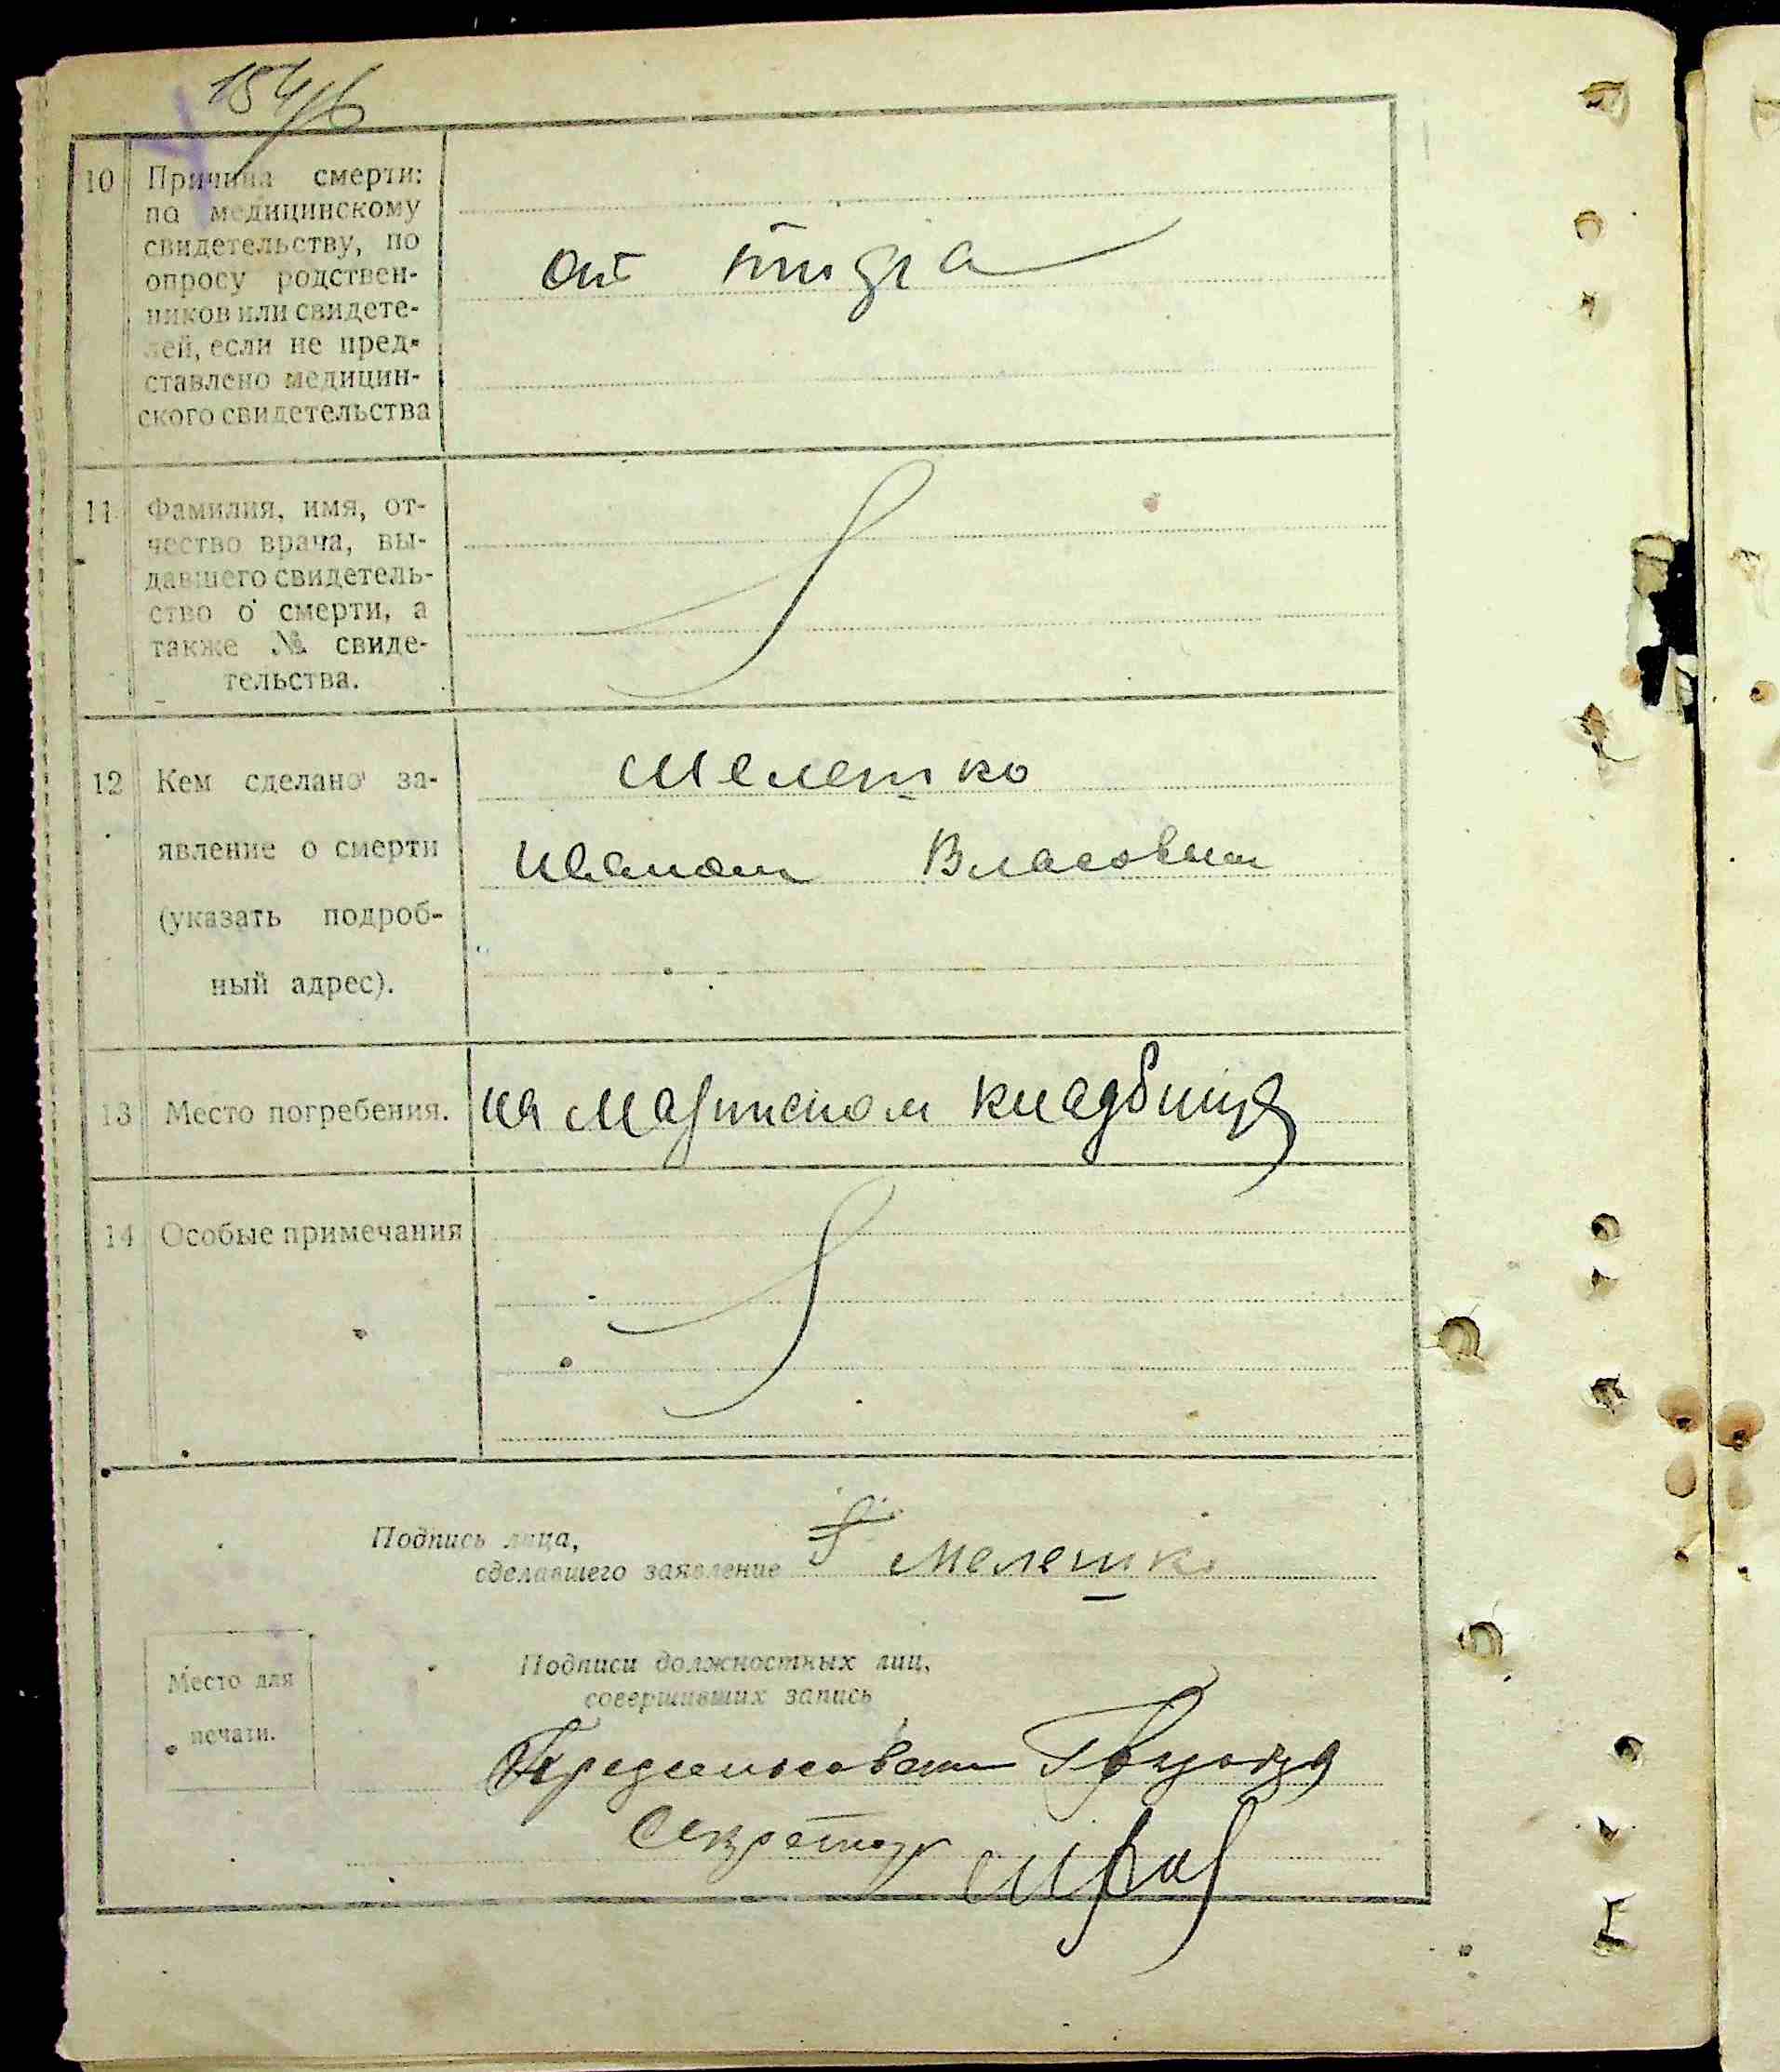 154/б
10 Причина смерти:
по медицинскому
свидетельству, по
опросу родствен-
ников или свидете-
лей, если не пред-
ставлено медицин-
ского свидетельства
от тифа
11 Фамилия, имя, от-
чество врача, вы-
давшего свидетель-
ство о смерти, а
также № свиде-
тельства.
12 Кем сделано за-
явление о смерти
(указать подроб-
ный адрес).
Мелешко
Иваном Власовым
13 Место погребения.
на кладбище
14 Особые примечания
Подпись лица,
сделавшего заявление Мелешко
Место для
печати.
Подписи должностных лиц,
совершивших запись
Предсельсовета
Секретарь